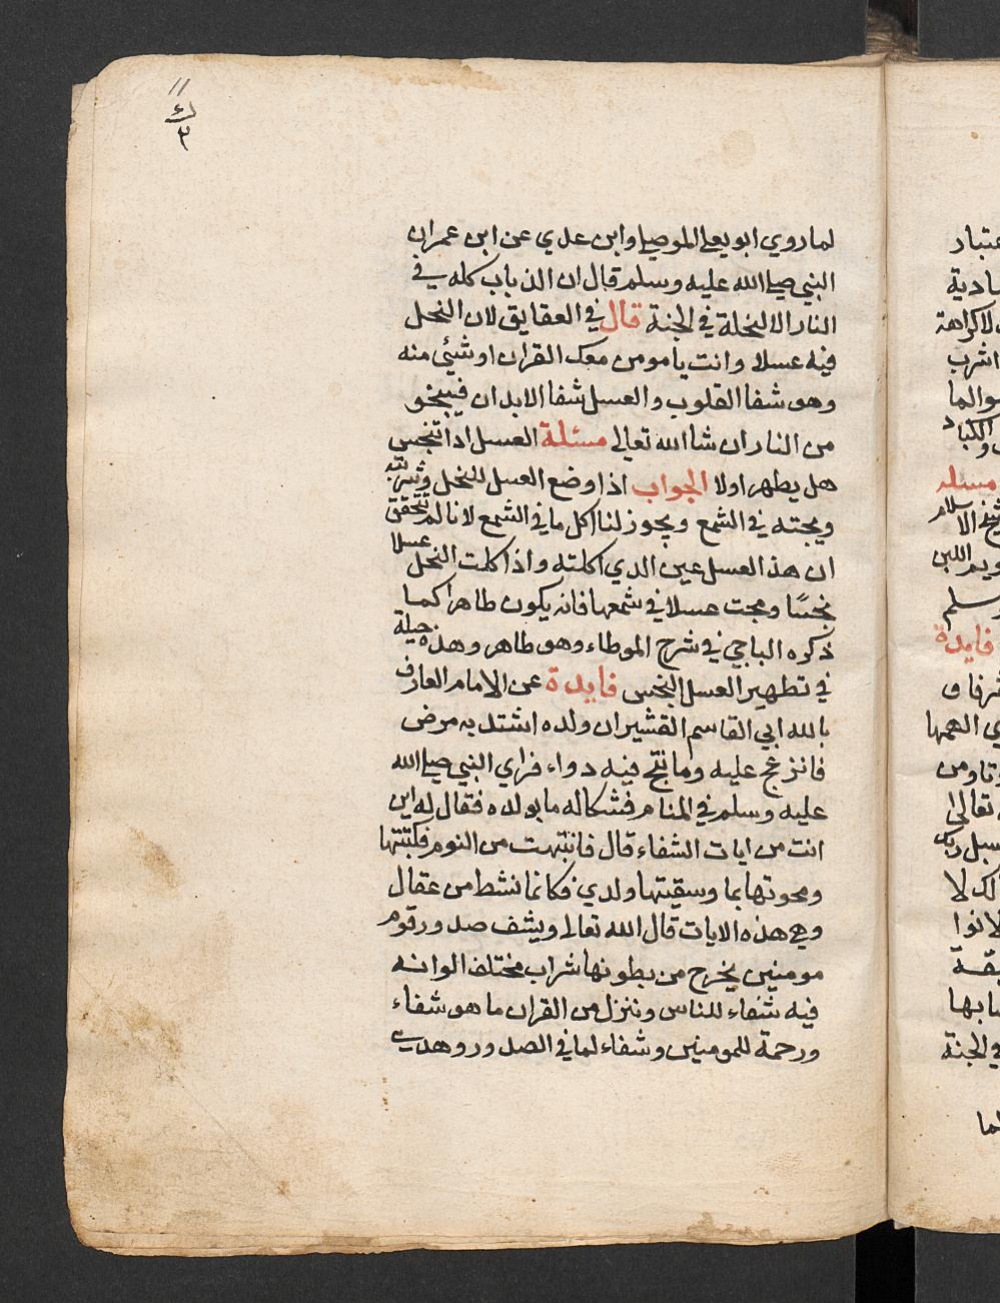 لما روي ابو يعلي الموصلي وابن عدي عن ابن عمران
النبي صلي الله عليه وسلم قال ان الذباب كله في
النار الا النحلة في الجنة قال في العقايق لان النحل
فيه عسلا وانت يا مومن معك القران او شيئ منه
وهو شفا القلوب والعسل شفا الابدان فينجو
من النار ان شا الله تعالي مسئلة العسل اذا تنجس
هل يطهر اولا الجواب اذا وضع العسل للنحل وشربته
ومجته في الشمع ويجوز لنا اكل ما في الشمع لانا لم نتحقق
ان هذ العسل عين الدي اكلته واذا كلت النحل عسلا
نجسًا ومجت عسلا في شمعها فانه يكون طاهرا كما
ذكره الباجي في شرح الموطاء وهو طاهر وهذه حيلة
في تطهير العسل النجس فايدة عن الامام العارف
بالله ابي القاسم القشيران ولده اشتد به مرض
فانزعج عليه وما نتج فيه دواء فراي النبي صلي الله
عليه وسلم في المنام فشكاله ما بولده فقال له اين
انت من ايات الشفاء قال فانتبهت من النوم فكتبتها
ومحوتها بما وسقيتها ولدي فكانما نشط من عقال
وهي هذه الايات قال الله تعالي ويشف صدور قوم
مومنين يخرج من بطونها شراب مختلف الوانه
فيه شفاء للناس وننزل من القران ما هو شفاء
ورحمة للمومنين وشفاء لما في الصدور وهدي